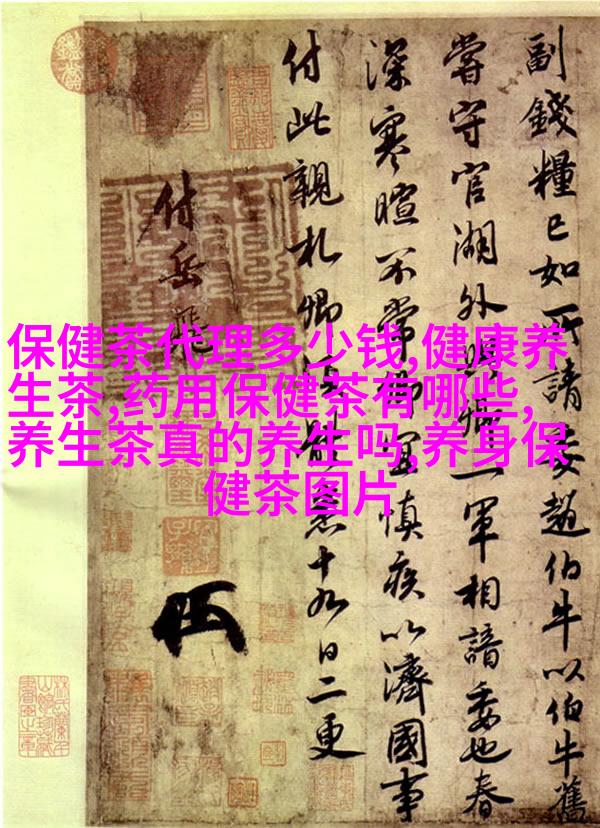 保健茶代理多少钱,健康养
生茶,药用保健茶有哪些,
养生茶真的养生吗,养身保
健茶图片
副錢糧已如所請委趙伯牛以伯牛舊
嘗守官湖外與卿一軍相諳委也春
深寒暄不常卿宜慎疾以濟國事
付此親札卿須體悉十九日二更
付岳飛